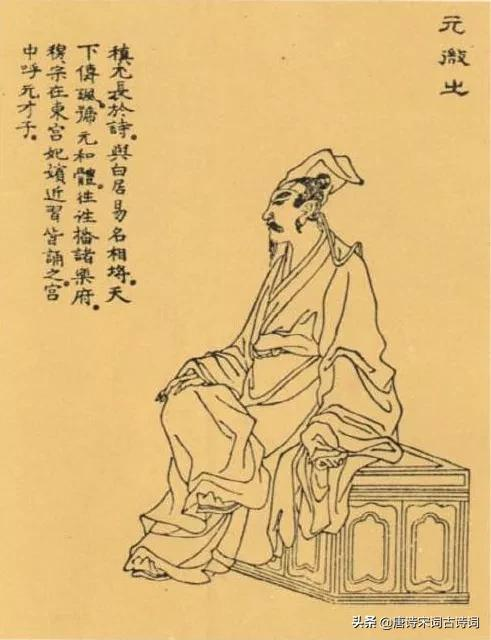 元微之
稹尤長於詩。與白居易名相埒。天
下傳諷。號元和體。往往播諸樂府。
穆宗在東宮妃嬪近習皆誦之宮
中呼元才子。
头条 @唐诗宋词古诗词